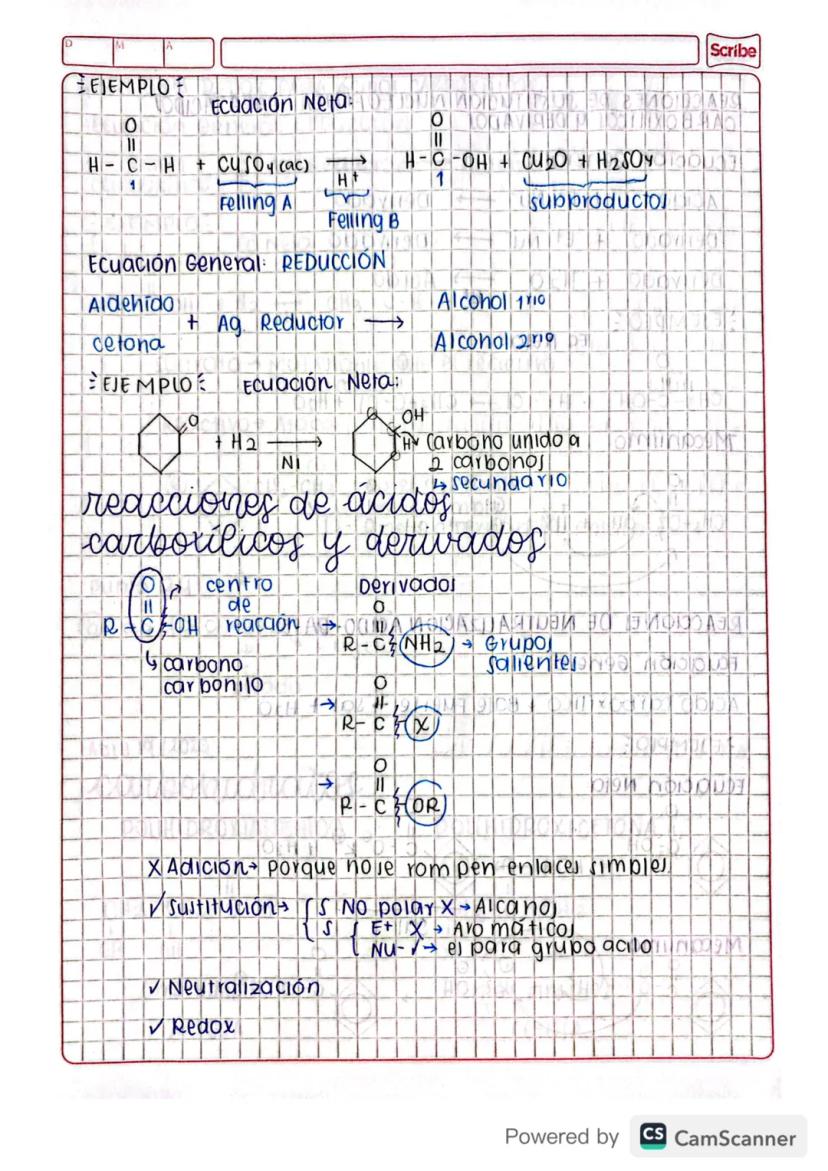 D M A
Scribe
EJEMPLO
Ecuación Neta:
O O
H - C - H + CuSO4 (ac) → H - C - OH + Cu2O + H2SO4
1 H+ 1
Felling A subproductos
Felling B
Ecuación General: REDUCCIÓN
Aldehído Alcohol 1rio
+ Ag. Reductor →
cetona Alcohol 2rio
EJEMPLO Ecuación Neta:
O OH
+ H2 → H Carbono unido a
Ni 2 carbonos
↳ secundario
reacciones de ácidos
carboxílicos y derivados
O → centro Derivados
de O
R - C - OH reacción → R - C NH2 → Grupos
salientes
↳ carbono
carbonilo
O
→ R - C X
O
→ R - C OR
X Adición → porque no se rompen enlaces simples
✓ Sustitución → S No polar X → Alcanos
S E+ X → Aromáticos
NU- ✓ → es para grupo acilo
✓ Neutralización
✓ Redox
Powered by CS CamScanner